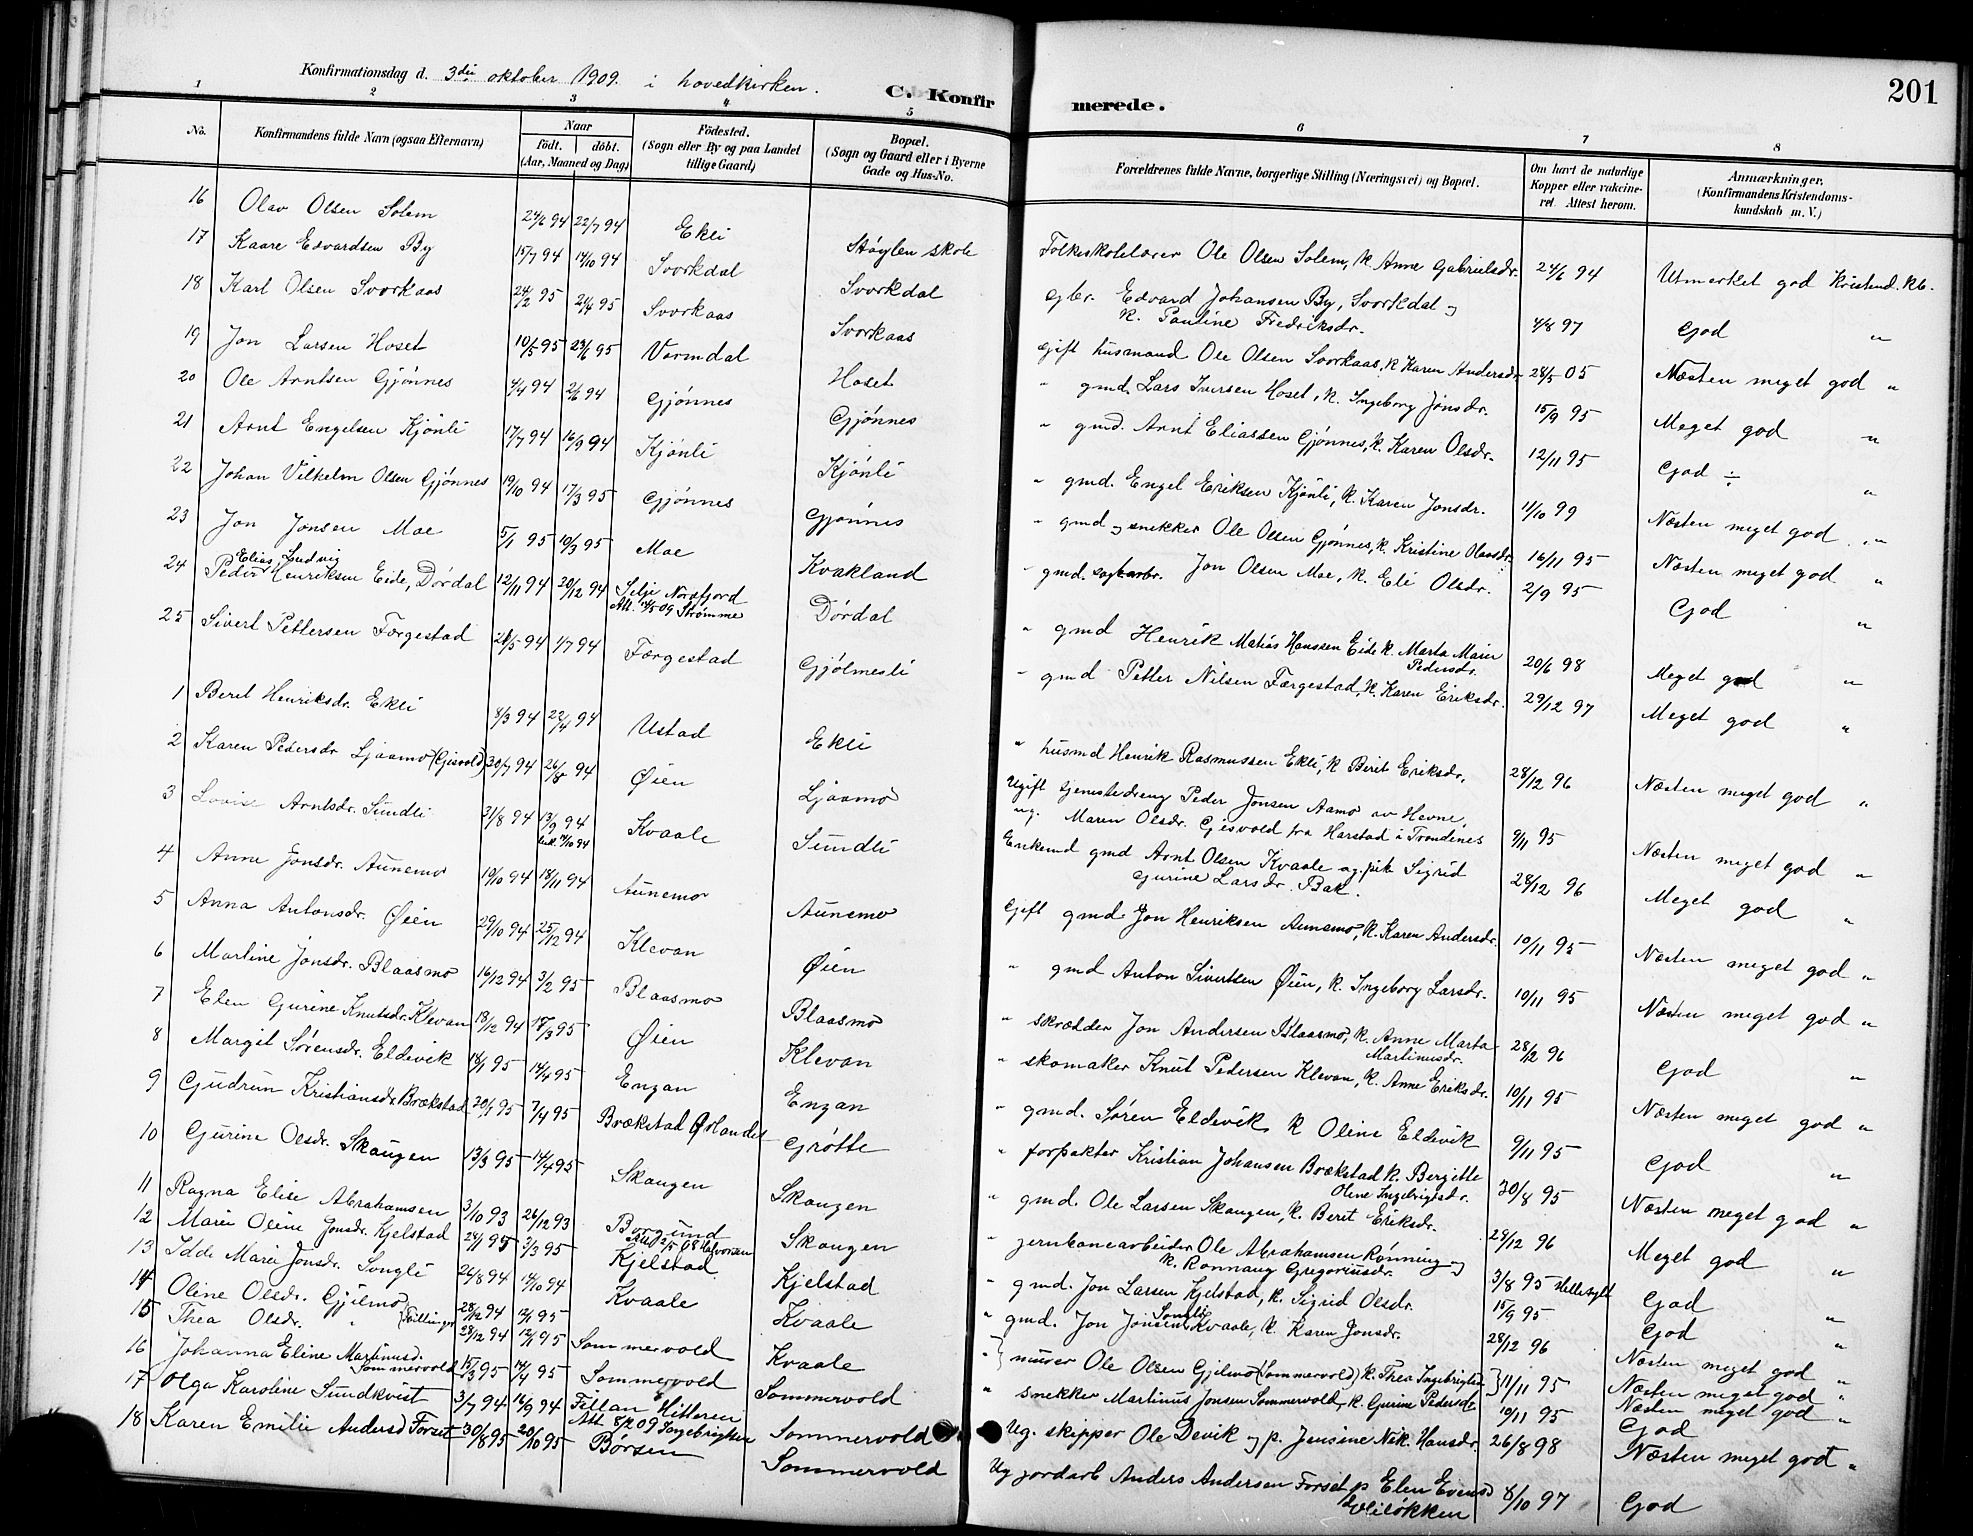 Konfirmationsdag d. 3die oktober 1909. i hovedkirken.
C. Konfirmerede.
201
1 2 3 4 5 6 7 8
No.
Konfirmandens fulde Navn (ogsaa Efternavn)
Naar
født. døbt.
(Aar, Maaned og Dag)
Fødested.
(Sogn eller By og paa Landet
tillige Gaard)
Bopæl.
(Sogn og Gaard eller i Byerne
Gade og Hus-No.
Forældrenes fulde Navne, borgerlige Stilling (Næringsvei) og Bopæl.
Om havt de naturlige
Kopper eller vakcine-
ret. Attest herom.
Anmærkninger,
(Konfirmandens Kristendoms-
kundskab m. V.)
16 Olav Olsen Solem 24/6 94 22/7 94 Ekli Støylen skole Folkeskolelærer Ole Olsen Solem, k. Anne Gabrielsdr. 24/6 94 Utmerket god Kristend. kb.
17 Kaare Edvardsen By 15/7 94 14/10 94 Svorkdal Svorkdal gbr. Edvard Johansen By, Svorkdal og
k. Pauline Fredriksdr. 4/8 97 God "
18 Karl Olsen Svorkaas 24/2 95 21/4 95 Svorkaas Svorkaas gift husmand Ole Olsen Svorkaas, k Karen Andersdr 28/5 05 Næsten meget god "
19 Jon Larsen Hoset 10/5 95 23/6 95 Vormdal Hoset " gmd. Lars Iversen Hoset, k. Ingeborg Jonsdr. 15/9 95 Meget god "
20 Ole Arntsen Gjønnes 4/4 94 2/6 94 Gjønnes Gjønnes " gmd. Arnt Eliassen Gjønnes, k. Karen Olsdr. 12/11 95 God ÷ "
21 Arnt Engelsen Kjønli 17/7 94 16/9 94 Kjønli Kjønli " gmd. Engel Eriksen Kjønli, k. Karen Jonsdr. 11/10 99 Næsten meget god "
22 Johan Vilhelm Olsen Gjønnes 19/10 94 17/3 95 Gjønnes Gjønnes " gmd og snekker Ole Olsen Gjønnes, k. Kristine Olausdr 16/11 95 Næsten meget god "
23 Jon Jonsen Moe 5/1 95 10/3 95 Moe Kvakland " gmd. sagkarbr. Jon Olsen Moe, k. Eli Olsdr. 2/9 95 God "
Elias Ludvig
24 Peder Henriksen Eide, Dørdal 12/11 94 30/12 94 Selje Nordfjord Dørdal " gmd Henrik Matias Hanssen Eide k. Marta Marie 20/6 98 Meget god "
Att. 14/5 09 Strømme Pedersdr.
25 Sivert Pettersen Færgestad 21/5 94 1/7 94 Færgestad Gjølmesli " gmd Petter Nilsen Færgestad, k. Karen Eriksdr. 29/12 97 Meget god "
1 Beret Henriksdr. Ekli 8/3 94 22/4 94 Ustad Ekli " husmd Henrik Rasmussen Ekli, k Berit Eriksdr. 28/12 96 Næsten meget god "
2 Karen Pedersdr Ljaamo (Gisvold) 30/7 94 26/8 94 Øien Ljaamo Ugift tjenestedreng Peder Jonsen Aamo av Hevne,
ug. Maren Olsdr. Gisvold fra Harstad i Trondenes 9/11 95 Næsten meget god "
3 Lovise Arntsdr. Sundli 31/8 94 13/9 94 Kvaale Sundli Enkemd gmd Arnt Olsen Kvaale og pik Sigrid 28/12 96 Meget god "
14/10 94 Gurine Larsdr. Bak.
4 Anne Jonsdr. Aunemo 19/10 94 18/11 94 Aunemo Aunemo Gift gmd. Jon Henriksen Aunemo, k. Karen Andersdr. 10/11 95 Næsten meget god "
5 Anna Antonsdr. Øien 29/10 94 25/12 94 Klevan Øien " gmd Anton Sivertsen Øien, k. Ingeborg Larsdr. 10/11 95 Næsten meget god "
6 Martine Jonsdr. Blaasmo 16/12 94 3/2 95 Blaasmo Blaasmo " skrædder Jon Andersen Blaasmo, k. Anne Marta 28/2 96 God "
Martinusdr.
7 Elen Gurine Knutsdr. Klevan 18/12 94 17/3 95 Øien Klevan " skomaker Knut Pedersen Klevan, k. Anne Eriksdr. 10/11 95 Næsten meget god "
8 Margit Sørensdr. Eldevik 18/1 95 14/4 95 Enzan Enzan " gmd. Søren Eldevik k Oline Eldevik 9/11 95 God "
9 Gudrun Kristiansdr Brækstad 20/1 95 7/4 95 Brækstad Ørlandet Grøtte " forpakter Kristian Johansen Brækstad k. Bergitte 30/8 95 Næsten meget god "
Oline Ingebrigtsdr.
10 Gurine Olsdr. Skaugen 13/3 95 14/4 95 Skaugen Skaugen " gmd. Ole Larsen Skaugen, k. Berit Eriksdr. 29/12 96 Meget god "
11 Ragna Elise Abrahamsen 3/10 93 26/12 93 Borgund Skaugen " jernbanearbeider Ole Abrahamsen Rønning og
Att. 12/5 08 Halvorsen k. Rannaug Gregoriusdr. 3/8 95 Hellesylt God "
12 Marie Oline Jonsdr. Kjelstad 24/1 95 3/3 95 Kjelstad Kjelstad " gmd. Jon Larsen Kjelstad, k. Sigrid Olsdr. 15/9 95 God "
13 Idde Marie Jonsdr. Songli 26/8 94 14/10 94 Kvaale Kvaale " gmd. Jon Jonsen Songli Kvaale, k. Karen Jonsdr. 28/12 96 Næsten meget god "
14 Oline Olsdr. Gjilmo 28/12 94 12/1 95 Sommervold Kvaale " murer Ole Olsen Gjilmo (Sommervold) k. Thea Ingebrigtsdr 11/11 95 Næsten meget god "
15 Thea Olsdr. " (Tvillinger) 28/12 94 12/1 95 Næsten meget god "
16 Johanna Eline Martinusd. 15/3 95 14/4 95 Sommervold Sommervold " snekker Martinus Jonsen Sommervold, k Gurine Pedersdr 10/11 95 God "
Sommervold
17 Olga Karoline Sundkvist 3/7 94 16/9 94 Fillan Hitteren Sommervold Ug. skipper Ole Devik og p. Jensine Nik. Hansdr. 26/8 98 Næsten meget god "
Att 8/2 09 Ingebrigtsen
18 Karen Emilie Andersd Forset 30/8 95 20/10 95 Børsen Sommervold Ug jordarb Anders Andersen Forset p Elen Evensd 8/10 97 God
Vliløkken